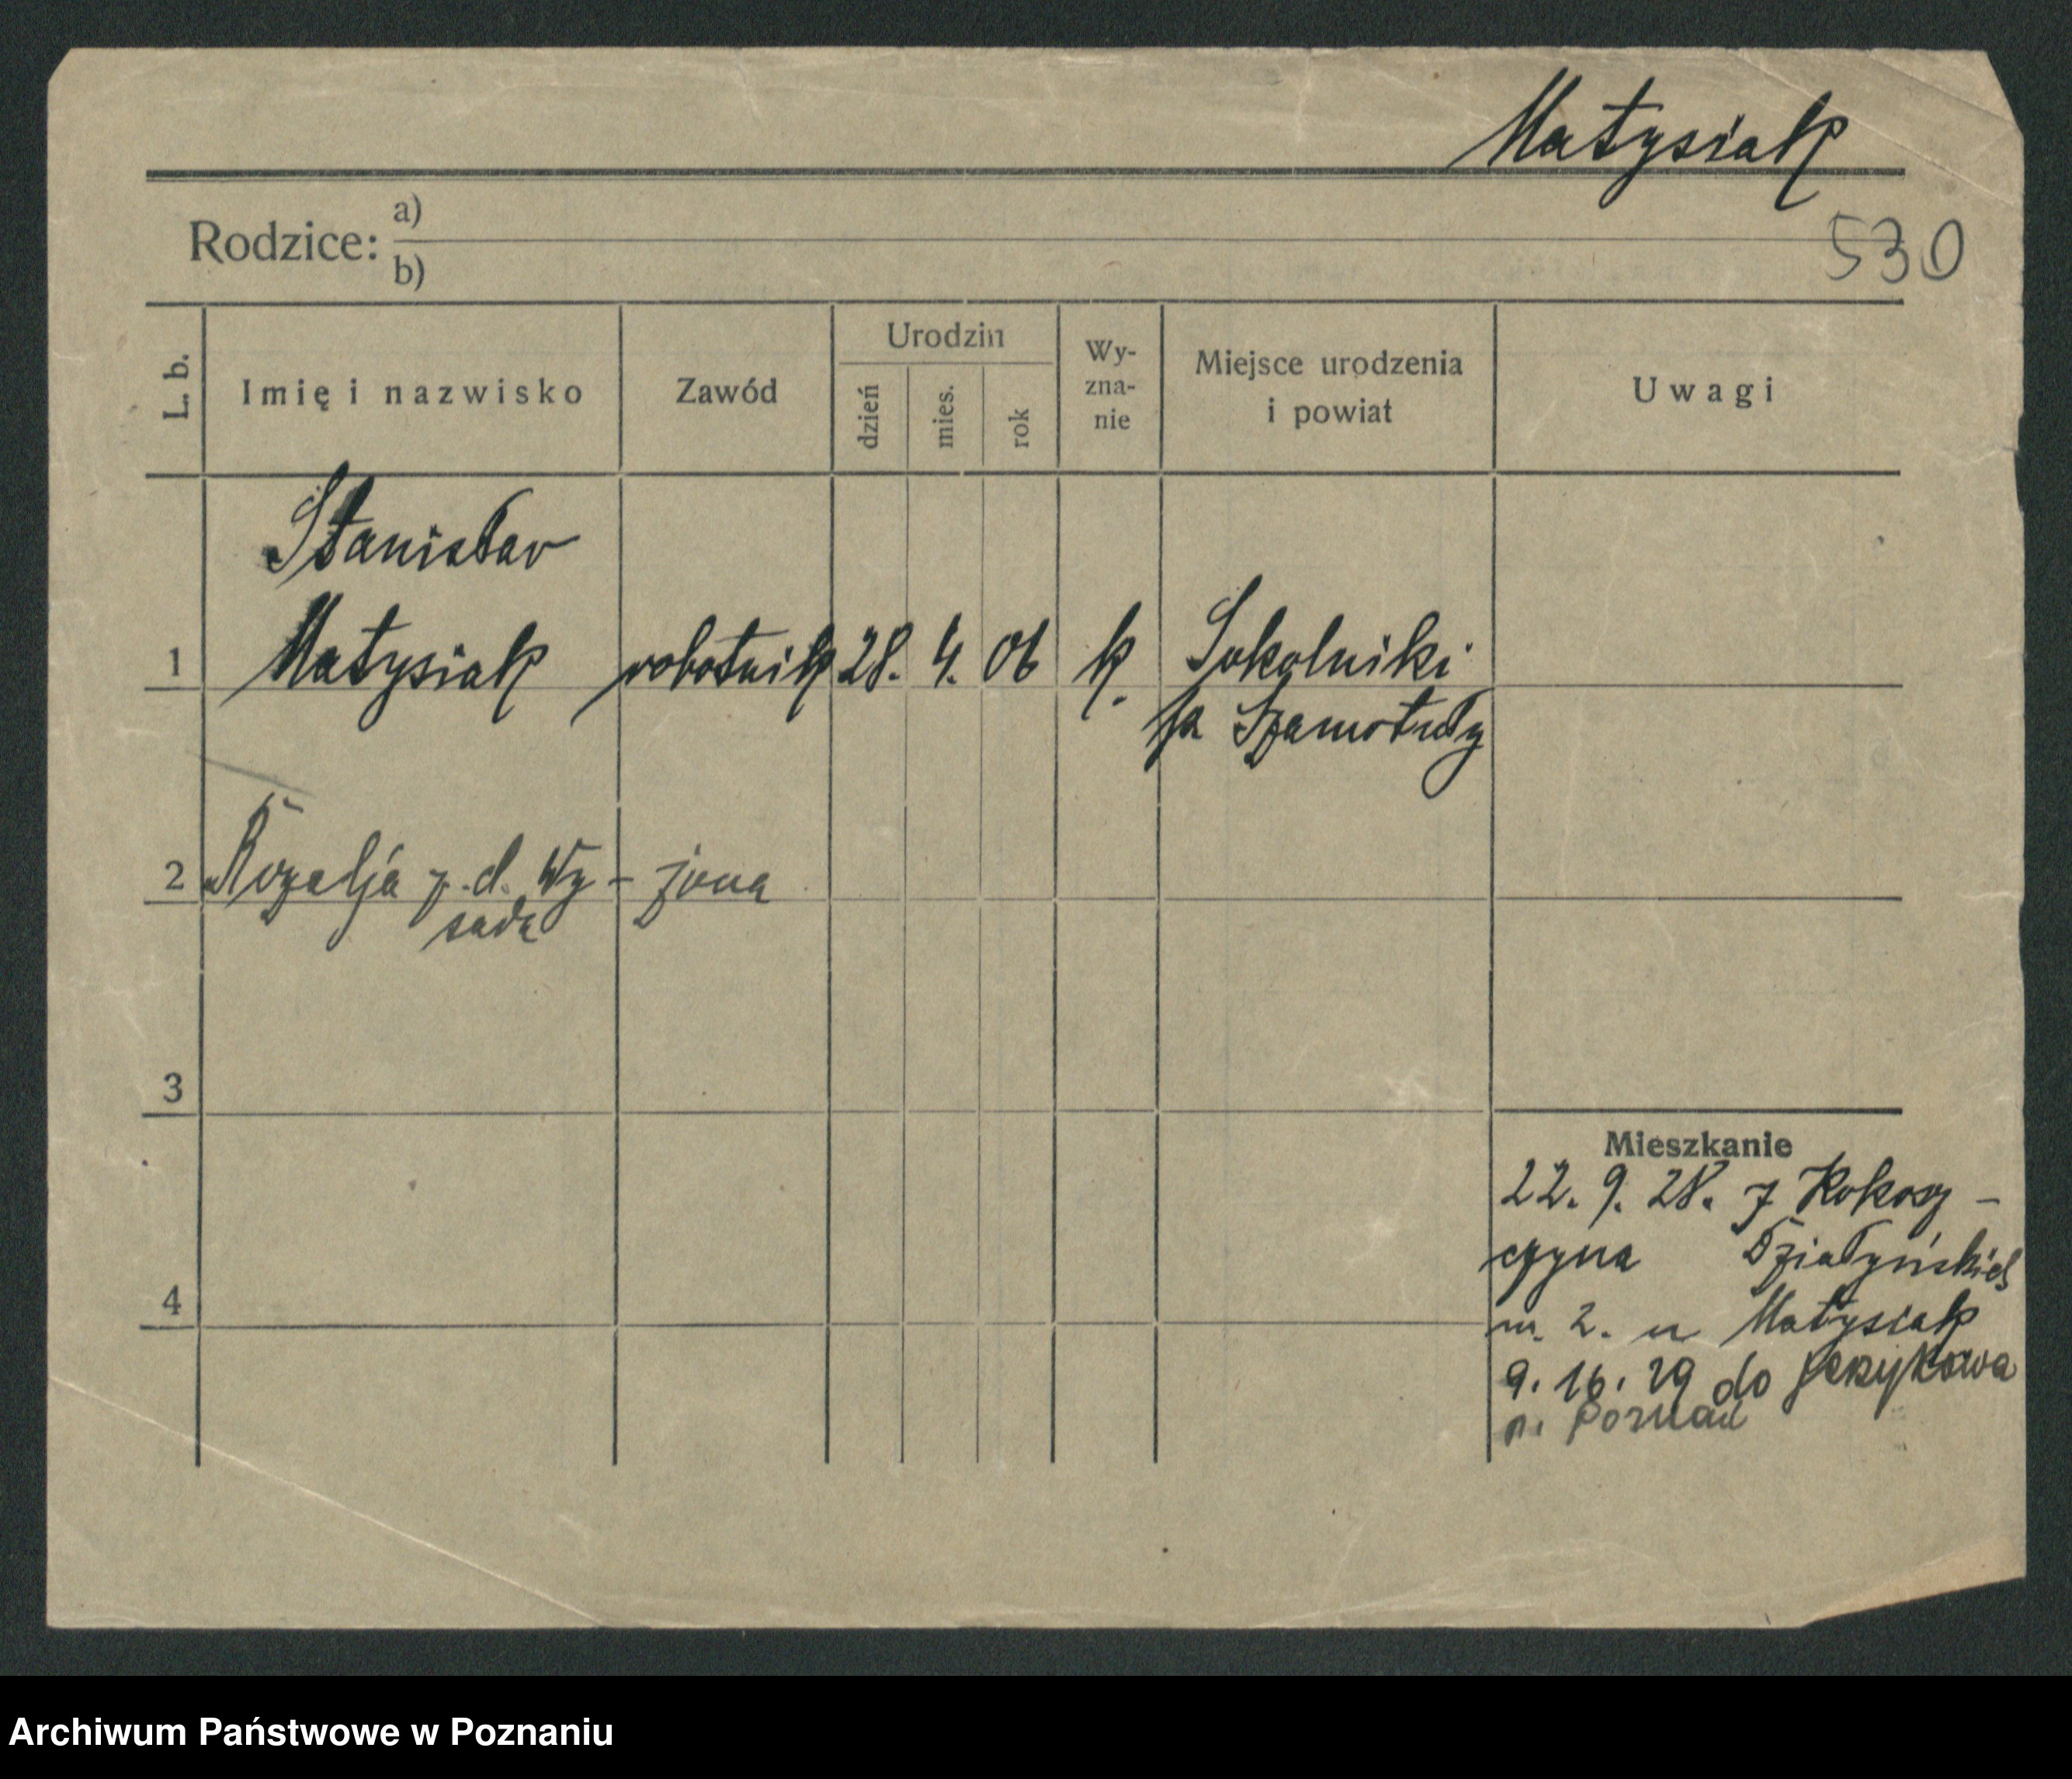 Matysiak
530
Rodzice: a)
b)
L. b.
Imię i nazwisko
Zawód
Urodzin
dzień
mies.
rok
Wy-
zna-
nie
Miejsce urodzenia
i powiat
Uwagi
Stanisław
1 Matysiak robotnik 28. 4. 06 k. Sokolniki
Szamotuły
2 Rozalja z. d. Wy- żona
3
4
Mieszkanie
22. 9. 28. z Kokosz-
czyna Działyńskich
m. 2. u Matysiak
9. 16. 29 do Jerzykowa
p. Poznań
Archiwum Państwowe w Poznaniu